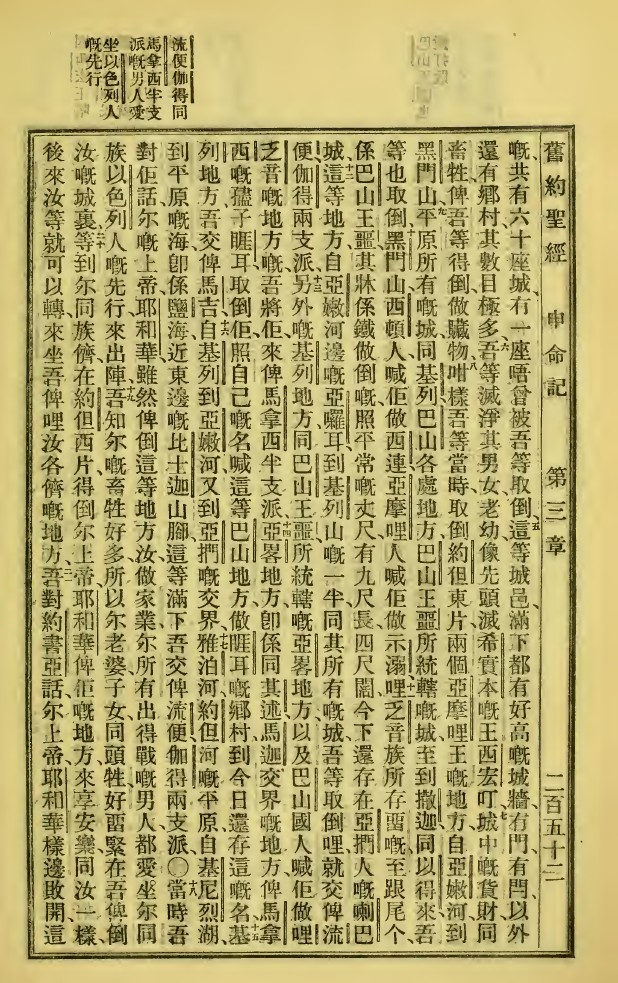 舊約聖經　申命記　第三章　二百五十二
嘅、共有六十座城、有一座唔曾被吾等取倒、五這等城邑、滿下都有好高嘅城牆、有門有閂、以外
還有鄉村、其數目極多、六吾等滅淨其男女老幼、像先頭滅希實本嘅王西宏、七叮城中嘅貨財、同
畜牲、俾吾等得倒做贜物、八咁樣、吾等當時取倒約但東片、兩個亞摩哩王嘅地方、自亞嫩河到
黑門山、九平原所有嘅城、同基列巴山各處地方、巴山王噩所統轄嘅城、至到撒迦同以得來、吾
等也取倒、黑門山西頓人喊佢做西連、亞摩哩人喊佢做示溺哩、十一乏音族所存留嘅、至跟尾个、
係巴山王噩、其牀係鐵做倒嘅、照平常嘅丈尺、有九尺長、四尺闊、今下還存在亞捫人嘅喇巴
城、十二這等地方、自亞嫩河邊嘅亞囉耳、到基列山嘅一半、同其所有嘅城、吾等取倒哩、就交俾流
便伽得兩支派、十三另外嘅基列地方、同巴山王噩所統轄嘅亞畧地方、以及巴山國人喊佢做哩
乏音嘅地方嘅、吾將佢來俾馬拿西半支派、十四亞畧地方、卽係同其述馬迦交界嘅地方、俾馬拿
西嘅孺子睚耳取倒、佢照自己嘅名、喊這等巴山地方、做睚耳嘅鄉村、到今日還存這嘅名、十五基
列地方、吾交俾馬吉、十六自基列到亞嫩河、又到亞捫嘅交界雅泊河、十七約但河嘅平原、自基尼烈湖、
到平原嘅海、卽係鹽海、近東邊嘅比士迦山腳、這等滿下、吾交俾流便伽得兩支派、〇十八當時吾
對佢話、尔嘅上帝耶和華、雖然俾倒這等地方、汝做家業、尔所有出得戰嘅男人、都愛坐尔同
族以色列人嘅先行、來出陣、十九吾知尔嘅畜牲好多、所以尔老婆子女、同頭牲、好畱緊在吾俾倒
汝嘅城裏、二十等到尔同族儕、在約但西片、得倒尔上帝耶和華俾佢嘅地方、來享安樂、同汝一樣、
後來汝等就可以轉來、坐吾俾哩汝各儕嘅地方、二一吾對約書亞話、尔上帝耶和華、樣邊敗開這
流便伽得同
馬拿西半支
派嘅男人愛
坐以色列人
嘅先行